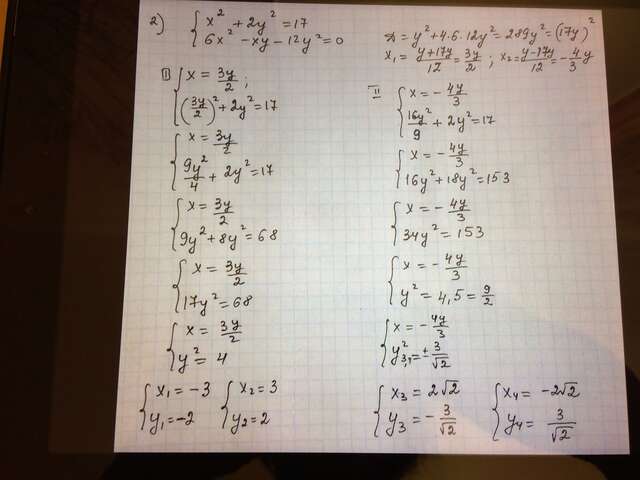 2) { x² + 2y² = 17
{ 6x² - xy - 12y² = 0
D = y² + 4·6·12y² = 289y² = (17y)²
x₁ = (y+17y)/12 = 3y/2 ; x₂ = (y-17y)/12 = -4/3 y
I { x = 3y/2 ;
{ (3y/2)² + 2y² = 17
{ x = 3y/2
{ 9y²/4 + 2y² = 17
{ x = 3y/2
{ 9y² + 8y² = 68
{ x = 3y/2
{ 17y² = 68
{ x = 3y/2
{ y² = 4
{ x₁ = -3 { x₂ = 3
{ y₁ = -2 { y₂ = 2
II { x = - 4y/3
{ 16y²/9 + 2y² = 17
{ x = - 4y/3
{ 16y² + 18y² = 153
{ x = - 4y/3
{ 34y² = 153
{ x = - 4y/3
{ y² = 4,5 = 9/2
{ x = - 4y/3
{ y²₃,₄ = ± 3/√2
{ x₃ = 2√2 { x₄ = -2√2
{ y₃ = - 3/√2 { y₄ = 3/√2